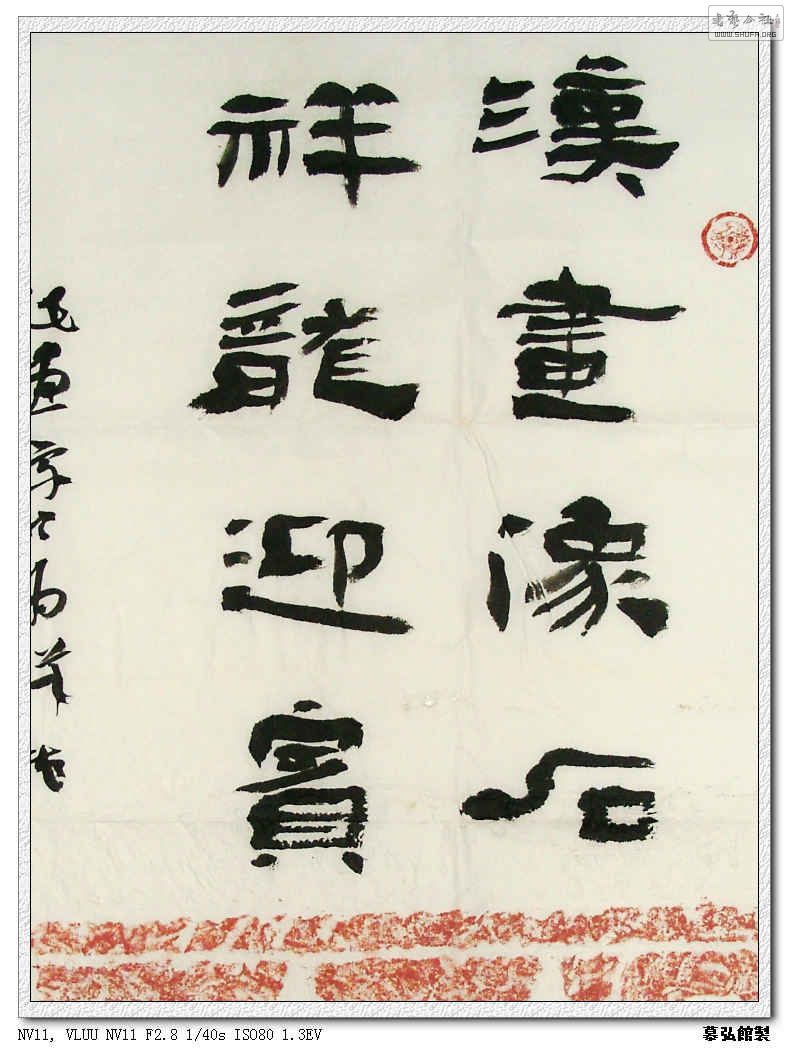 漢畫像石
祥龍迎賓
書藝公社
WWW.SHUFA.ORG
NV11, VLUU NV11 F2.8 1/40s ISO80 1.3EV
慕弘館製